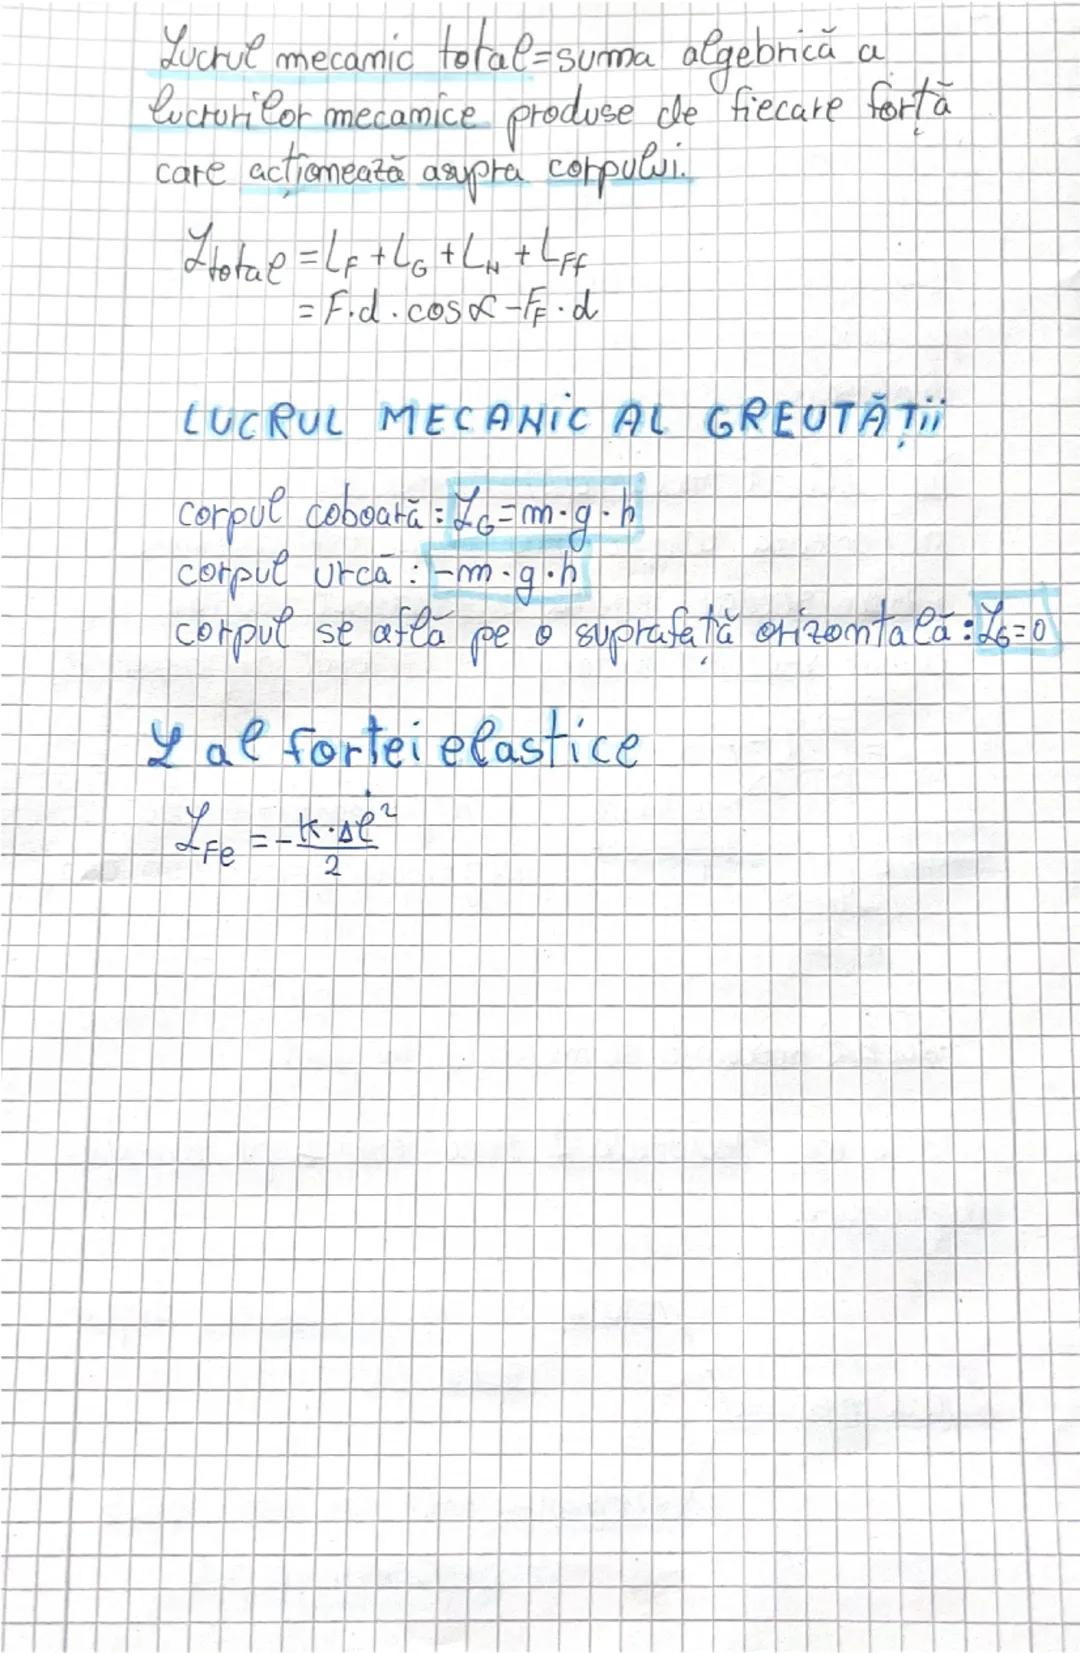 Lucrul mecanic total=suma algebrică a
lucrurilor mecanice produse de fiecare forță
care acționează asupra corpului.
Ltotal = LF + LG + LN + LFf
= F·d·cosα - FF·d
LUCRUL MECANIC AL GREUTĂȚII
corpul coboară: LG=m·g·h
corpul urcă: -m·g·h
corpul se află pe o suprafață orizontală: LG=0
L al forței elastice
LFe = - K·Δl² / 2